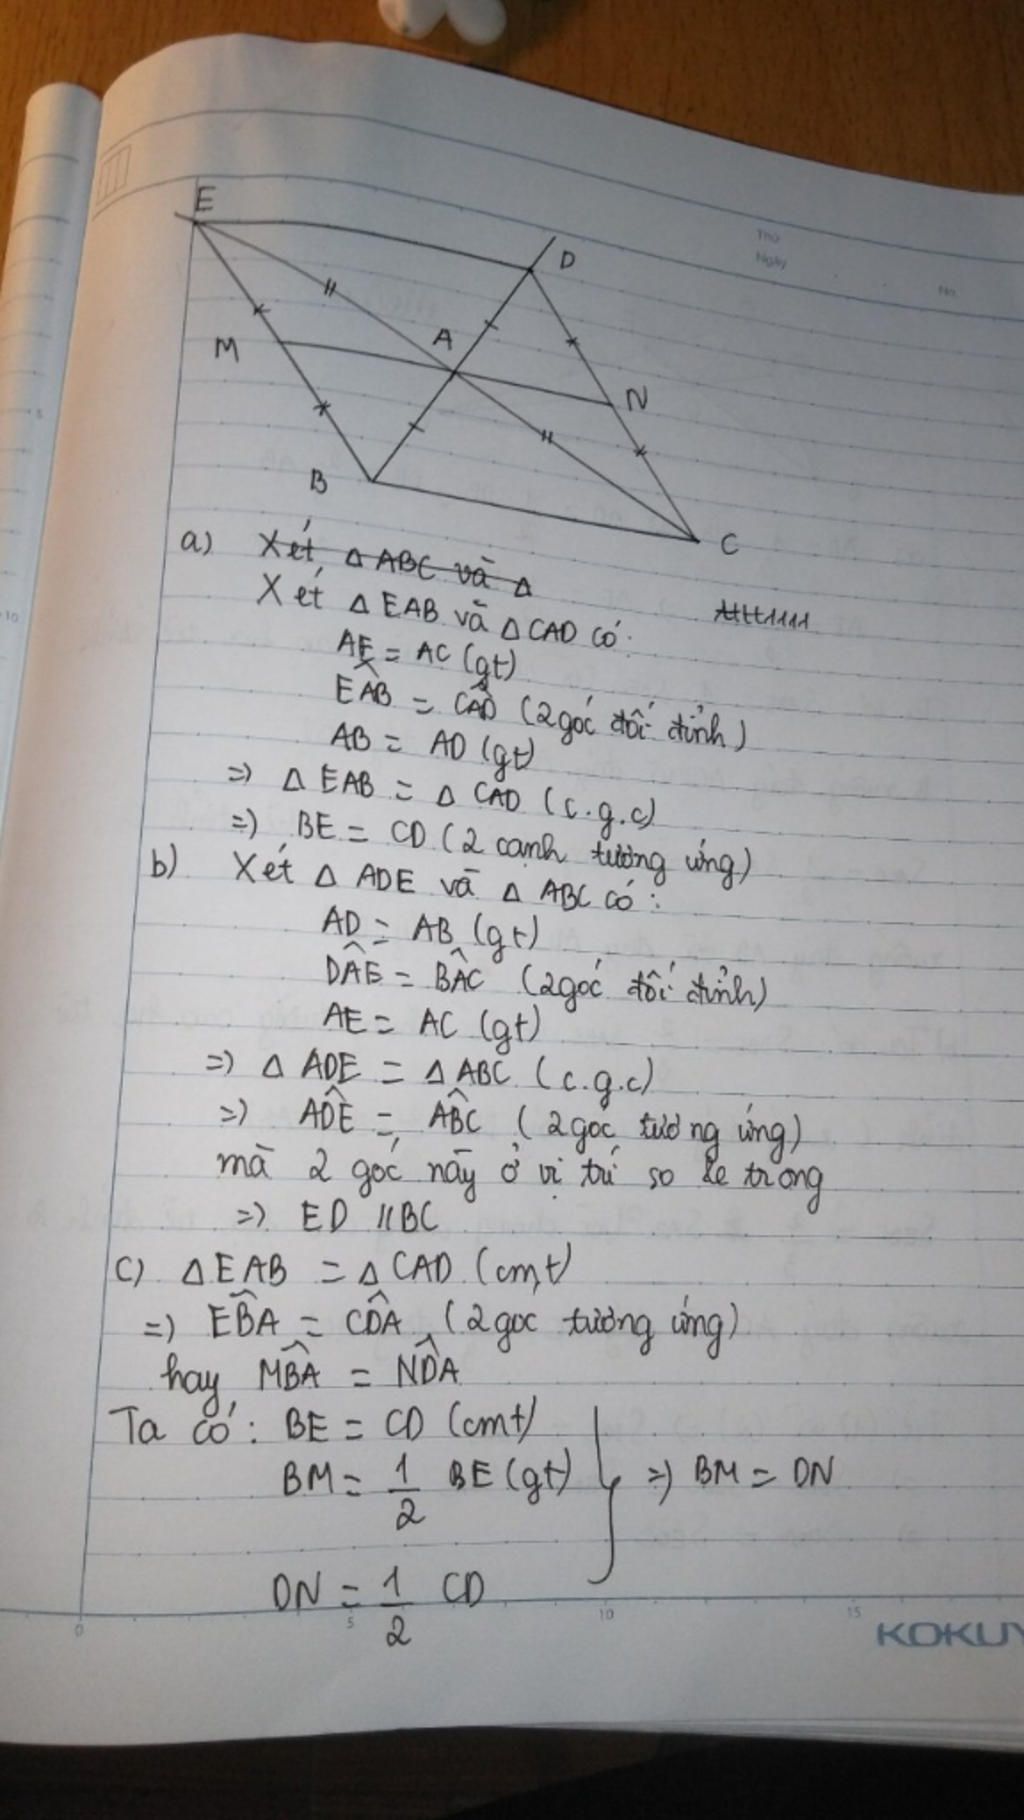 Thứ
Ngày
No.
E
D
A
M
N
B
C
a) Xét △ ABC và △
Xét △ EAB và △ CAD có:
AE = AC (gt)
EÂB = CÂD (2 góc đối đỉnh)
AB = AD (gt)
=> △ EAB = △ CAD (c.g.c)
=> BE = CD (2 cạnh tương ứng)
b) Xét △ ADE và △ ABC có:
AD = AB (gt)
DÂE = BÂC (2 góc đối đỉnh)
AE = AC (gt)
=> △ ADE = △ ABC (c.g.c)
=> AD̂E = AB̂C (2 góc tương ứng)
mà 2 góc này ở vị trí so le trong
=> ED // BC
c) △ EAB = △ CAD (cmt)
=> EB̂A = CD̂A (2 goc tương ứng)
hay MB̂A = ND̂A
Ta có: BE = CD (cmt)
BM = 1/2 BE (gt) => BM = DN
DN = 1/2 CD
0 5 10 15
KOKUY